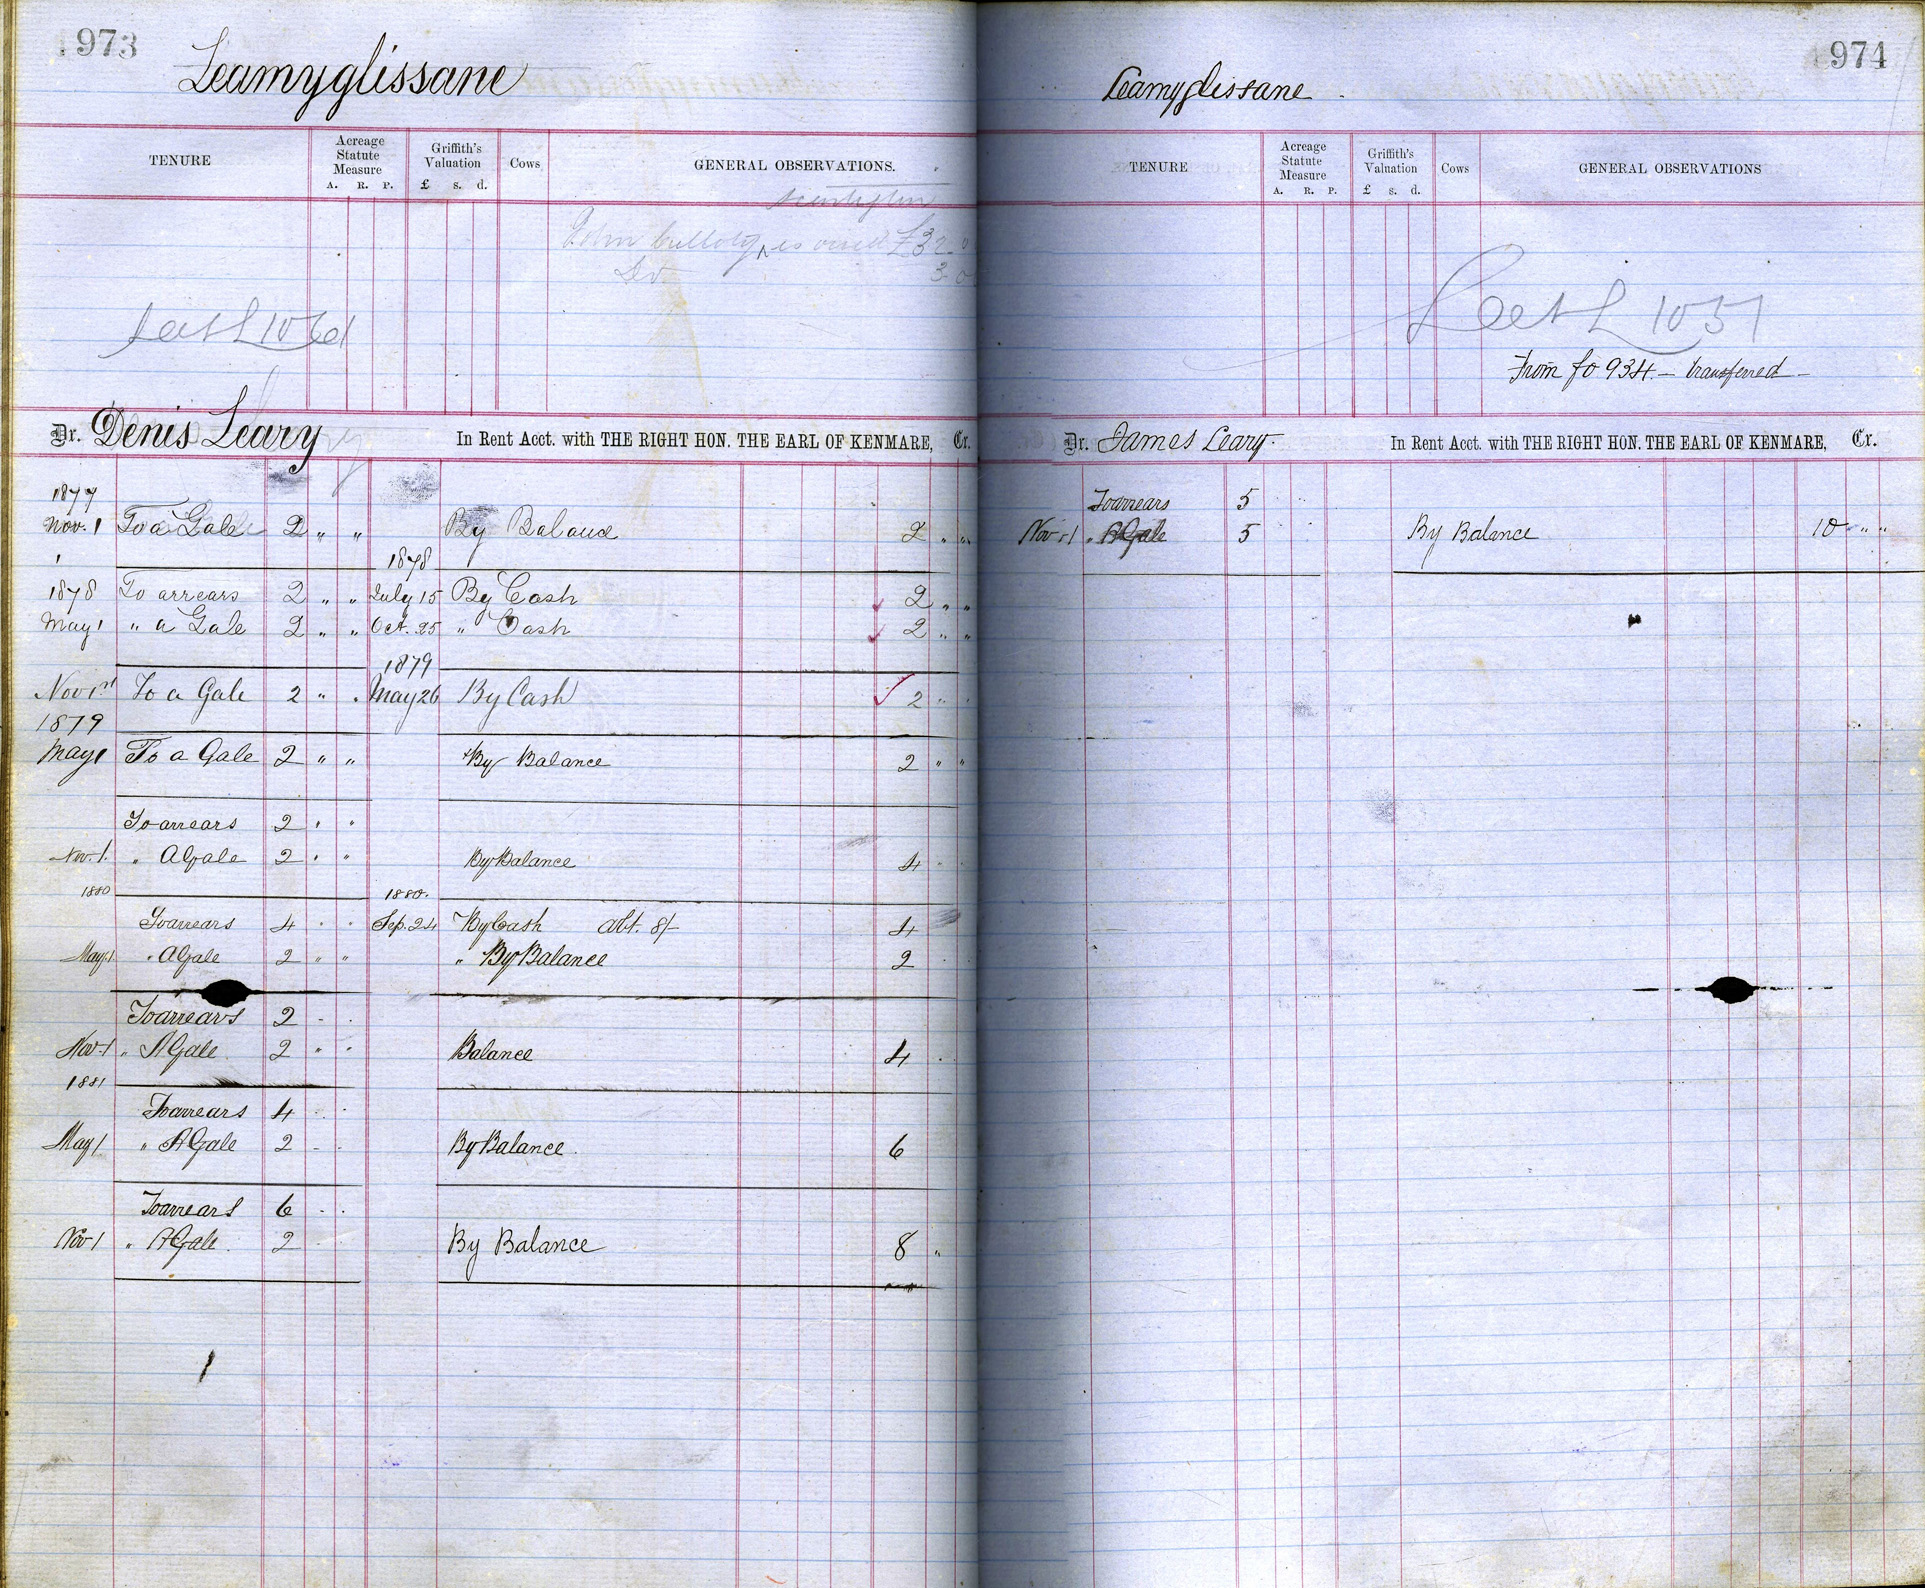 973
Leamyglissane
TENURE Acreage Statute Measure A. R. P. Griffith's Valuation £ s. d. Cows GENERAL OBSERVATIONS.
John is £32
Do 3
Dr. Denis Leary In Rent Acct. with THE RIGHT HON. THE EARL OF KENMARE, Cr.
1877
Nov. 1 To a Gale 2 " " By Balance 2 " "
1878
1878 To arrears 2 " " July 15 By Cash 2 " "
May 1 " a Gale 2 " " Oct. 25 " Cash 2 " "
1879
Nov 1st To a Gale 2 " " May 26 By Cash 2 " "
1879
May 1 To a Gale 2 " " By Balance 2 " "
To arrears 2 " "
Nov. 1. " A Gale 2 " " By Balance 4 "
1880 1880.
To arrears 4 " " Sep. 24 By Cash Abt. 8/- 4
May 1 " A Gale 2 " " " By Balance 2
To arrears 2 - -
Nov 1 " A Gale 2 " " Balance 4
1881
To arrears 4
May 1 " A Gale 2 - - By Balance. 6
To arrears 6 - -
Nov 1 " A Gale. 2 By Balance 8 "
974
Leamyglissane
TENURE Acreage Statute Measure A. R. P. Griffith's Valuation £ s. d. Cows GENERAL OBSERVATIONS
L 1051
From fo 934 - transferred -
Dr. James Leary. In Rent Acct. with THE RIGHT HON. THE EARL OF KENMARE, Cr.
To arrears 5
Nov 1 " A Gale 5 By Balance 10 " "